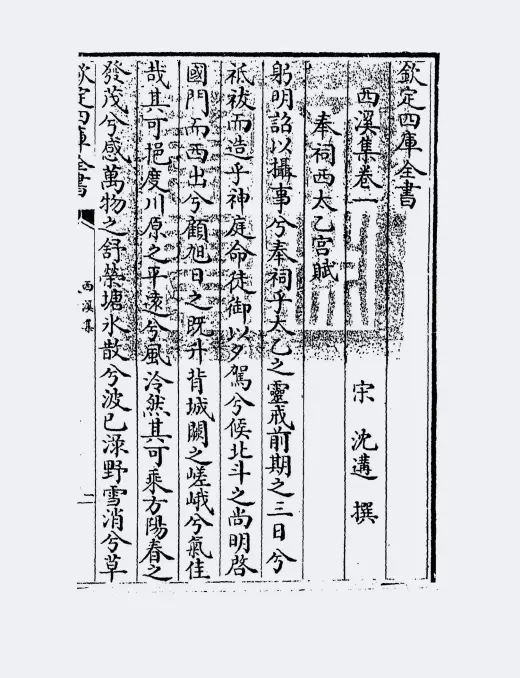 欽定四庫全書
西溪集卷一
宋 沈遘 撰
奉祠西太乙宫賦
躬明詔以攝事兮奉祠乎太乙之靈戒前期之三日兮
祗祓而造乎神庭命徒御以夕駕兮候北斗之尚明啓
國門而西出兮顧旭日之既升背城闕之嵯峨兮氣佳
哉其可挹度川原之平逺兮風泠然其可乘方陽春之
發茂兮感萬物之舒榮塘氷散兮波已渌野雪消兮草
欽定四庫全書
西溪集
二